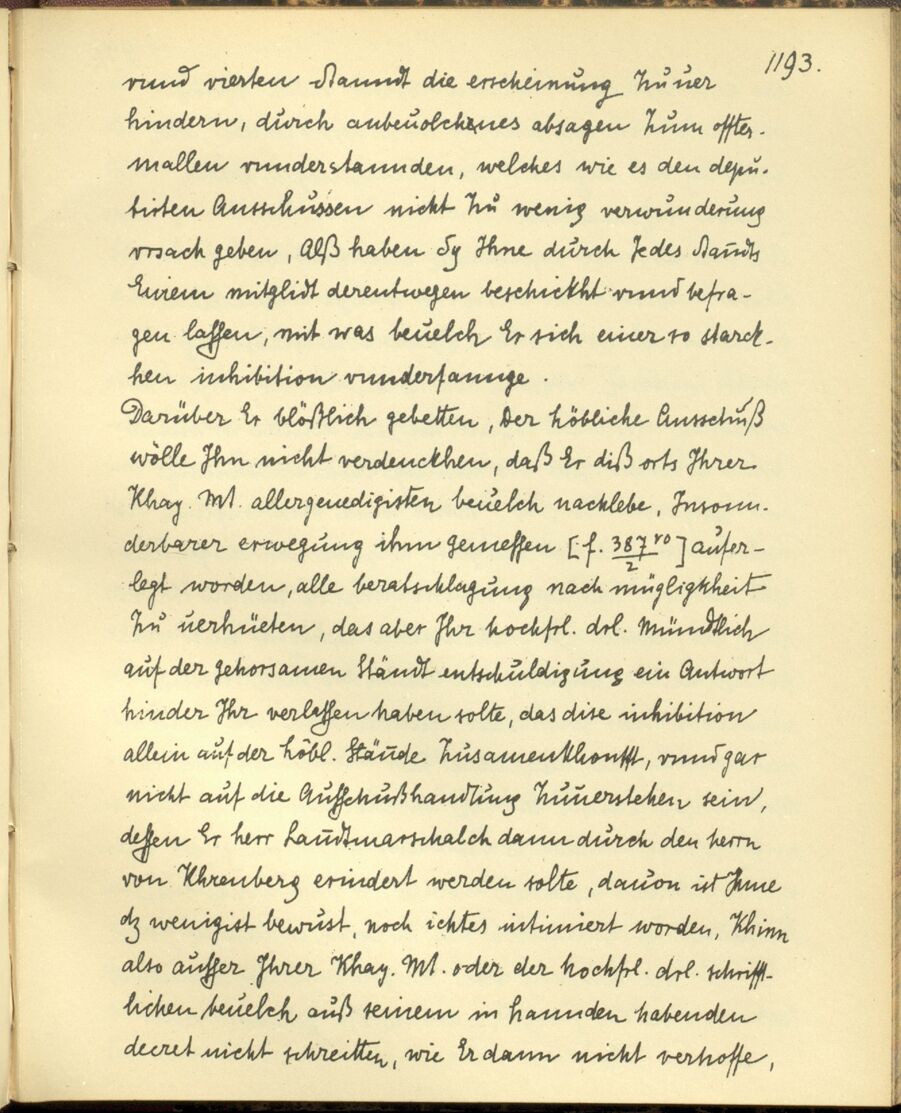 1193.
vnnd vierten Stanndt die erscheinung Zuuer
hindern, durch anbeuolchenes absagen Zum offter-
mallen vnnderstannden, welches wie es den depu-
tirten Ausschussen nicht Zu wenig verwunderung
vrsach geben, Alß haben Sy Ihne durch Jedes Standts
Einem mitglidt derentwegen beschickht vnnd befra-
gen lassen, mit was beuelch Er sich einer so starck-
hen inhibition vnnderfannge.
Darüber Er blößlich gebetten, Der höbliche Ausschuß
wölle Ihn nicht verdenckhen, daß Er diß orts Ihrer
Khay. Mt. allergenedigisten beuelch nachlebe, Insonn-
derbarer erwegung ihm gemessen [f. 387/2 ro] aufer-
legt worden, alle beratschlagung nach mügligkheit
Zu uerhüeten, das aber Ihr hochfrl. drl. Mündtlich
auf der gehorsamen Ständt entschuldigung ein Antwort
hinder Ihr verlassen haben solte, das dise inhibition
allein auf der höbl. Stände Zusamenkhonfft, vnnd gar
nicht auf die Ausschußhandlung Zuuerstehen sein,
dessen Er herr Landtmarschalch dann durch den herrn
von Khrenberg erindert werden solte, dauon ist Ihme
dz wenigist bewust, noch ichtes intimiert worden, Khinn
also ausser Ihrer Khay. Mt. oder der hochfrl. drl. schrifft-
lichen beuelch auß seinem in hannden habenden
decret nicht schreitten, wie Er dann nicht verhoffe,